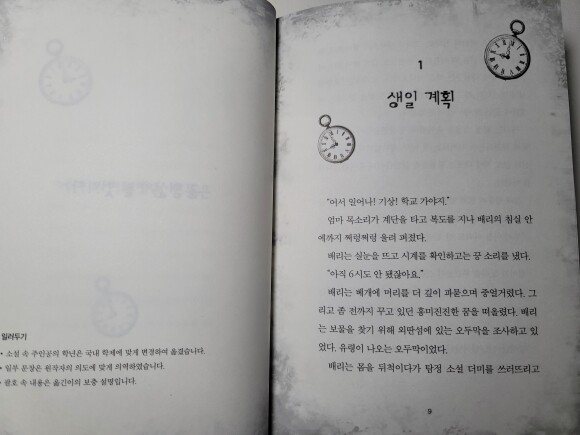 일러두기
• 소설 속 주인공의 학년은 국내 학제에 맞게 변경하여 옮겼습니다.
• 일부 문장은 원작자의 의도에 맞게 의역하였습니다.
• 괄호 속 내용은 옮긴이의 보충 설명입니다.
1
생일 계획
"어서 일어나! 기상! 학교 가야지."
엄마 목소리가 계단을 타고 복도를 지나 배리의 침실 안
에까지 쩌렁쩌렁 울려 퍼졌다.
배리는 실눈을 뜨고 시계를 확인하고는 끙 소리를 냈다.
"아직 6시도 안 됐잖아요."
배리는 베개에 머리를 더 깊이 파묻으며 중얼거렸다. 그
리고 좀 전까지 꾸고 있던 흥미진진한 꿈을 떠올렸다. 배리
는 보물을 찾기 위해 외딴섬에 있는 오두막을 조사하고 있
었다. 유령이 나오는 오두막이었다.
배리는 몸을 뒤척이다가 탐정 소설 더미를 쓰러뜨리고
9